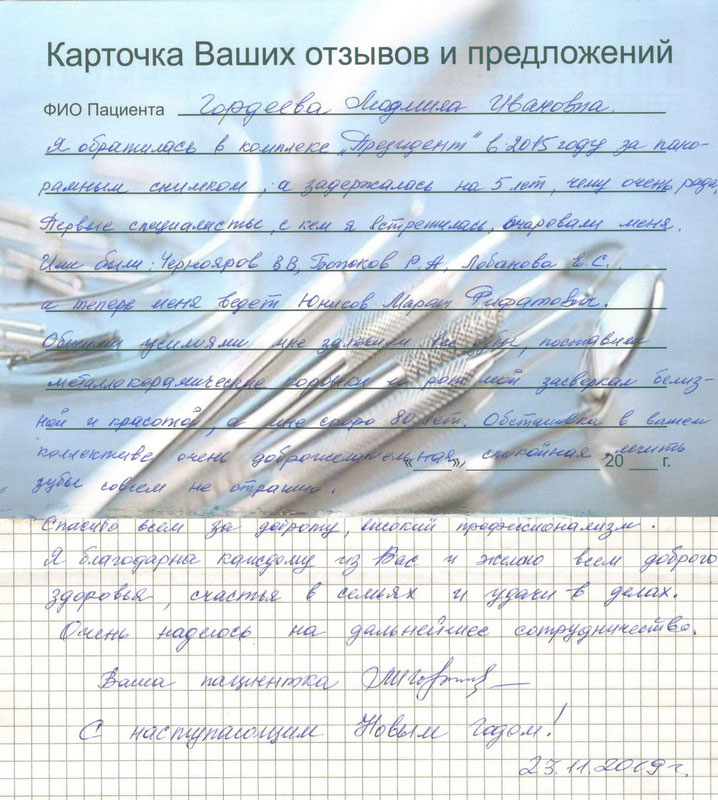 Карточка Ваших отзывов и предложений
ФИО Пациента Гордеева Людмила Ивановна.
Я обратилась в комплекс „Президент" в 2015 году за пано-
рамным снимком, а задержалась на 5 лет, чему очень рада,
Первые специалисты, с кем я встретилась, очаровали меня.
Ими были: Чернояров В В, Р. А, Лобанова Е. С.
а теперь меня ведет Юнисов Марат Рифатович.
Общими усилиями мне залечили все зубы, поставили
металокерамические коронки и рот мой засверкал белиз-
ной и красотой, а мне скоро 80 лет. Обстановка в вашем
коллективе очень доброжелательная, спокойная, лечить
« » 20 г.
зубы совсем не страшно.
Спасибо всем за доброту, высокий профессионализм.
Я благодарна каждому из Вас и желаю всем доброго
здоровья, счастья в семьях и удачи в делах.
Очень надеюсь на дальнейшее сотрудничество.
Ваша пациентка
С наступающим Новым годом!
23.11.2019г.